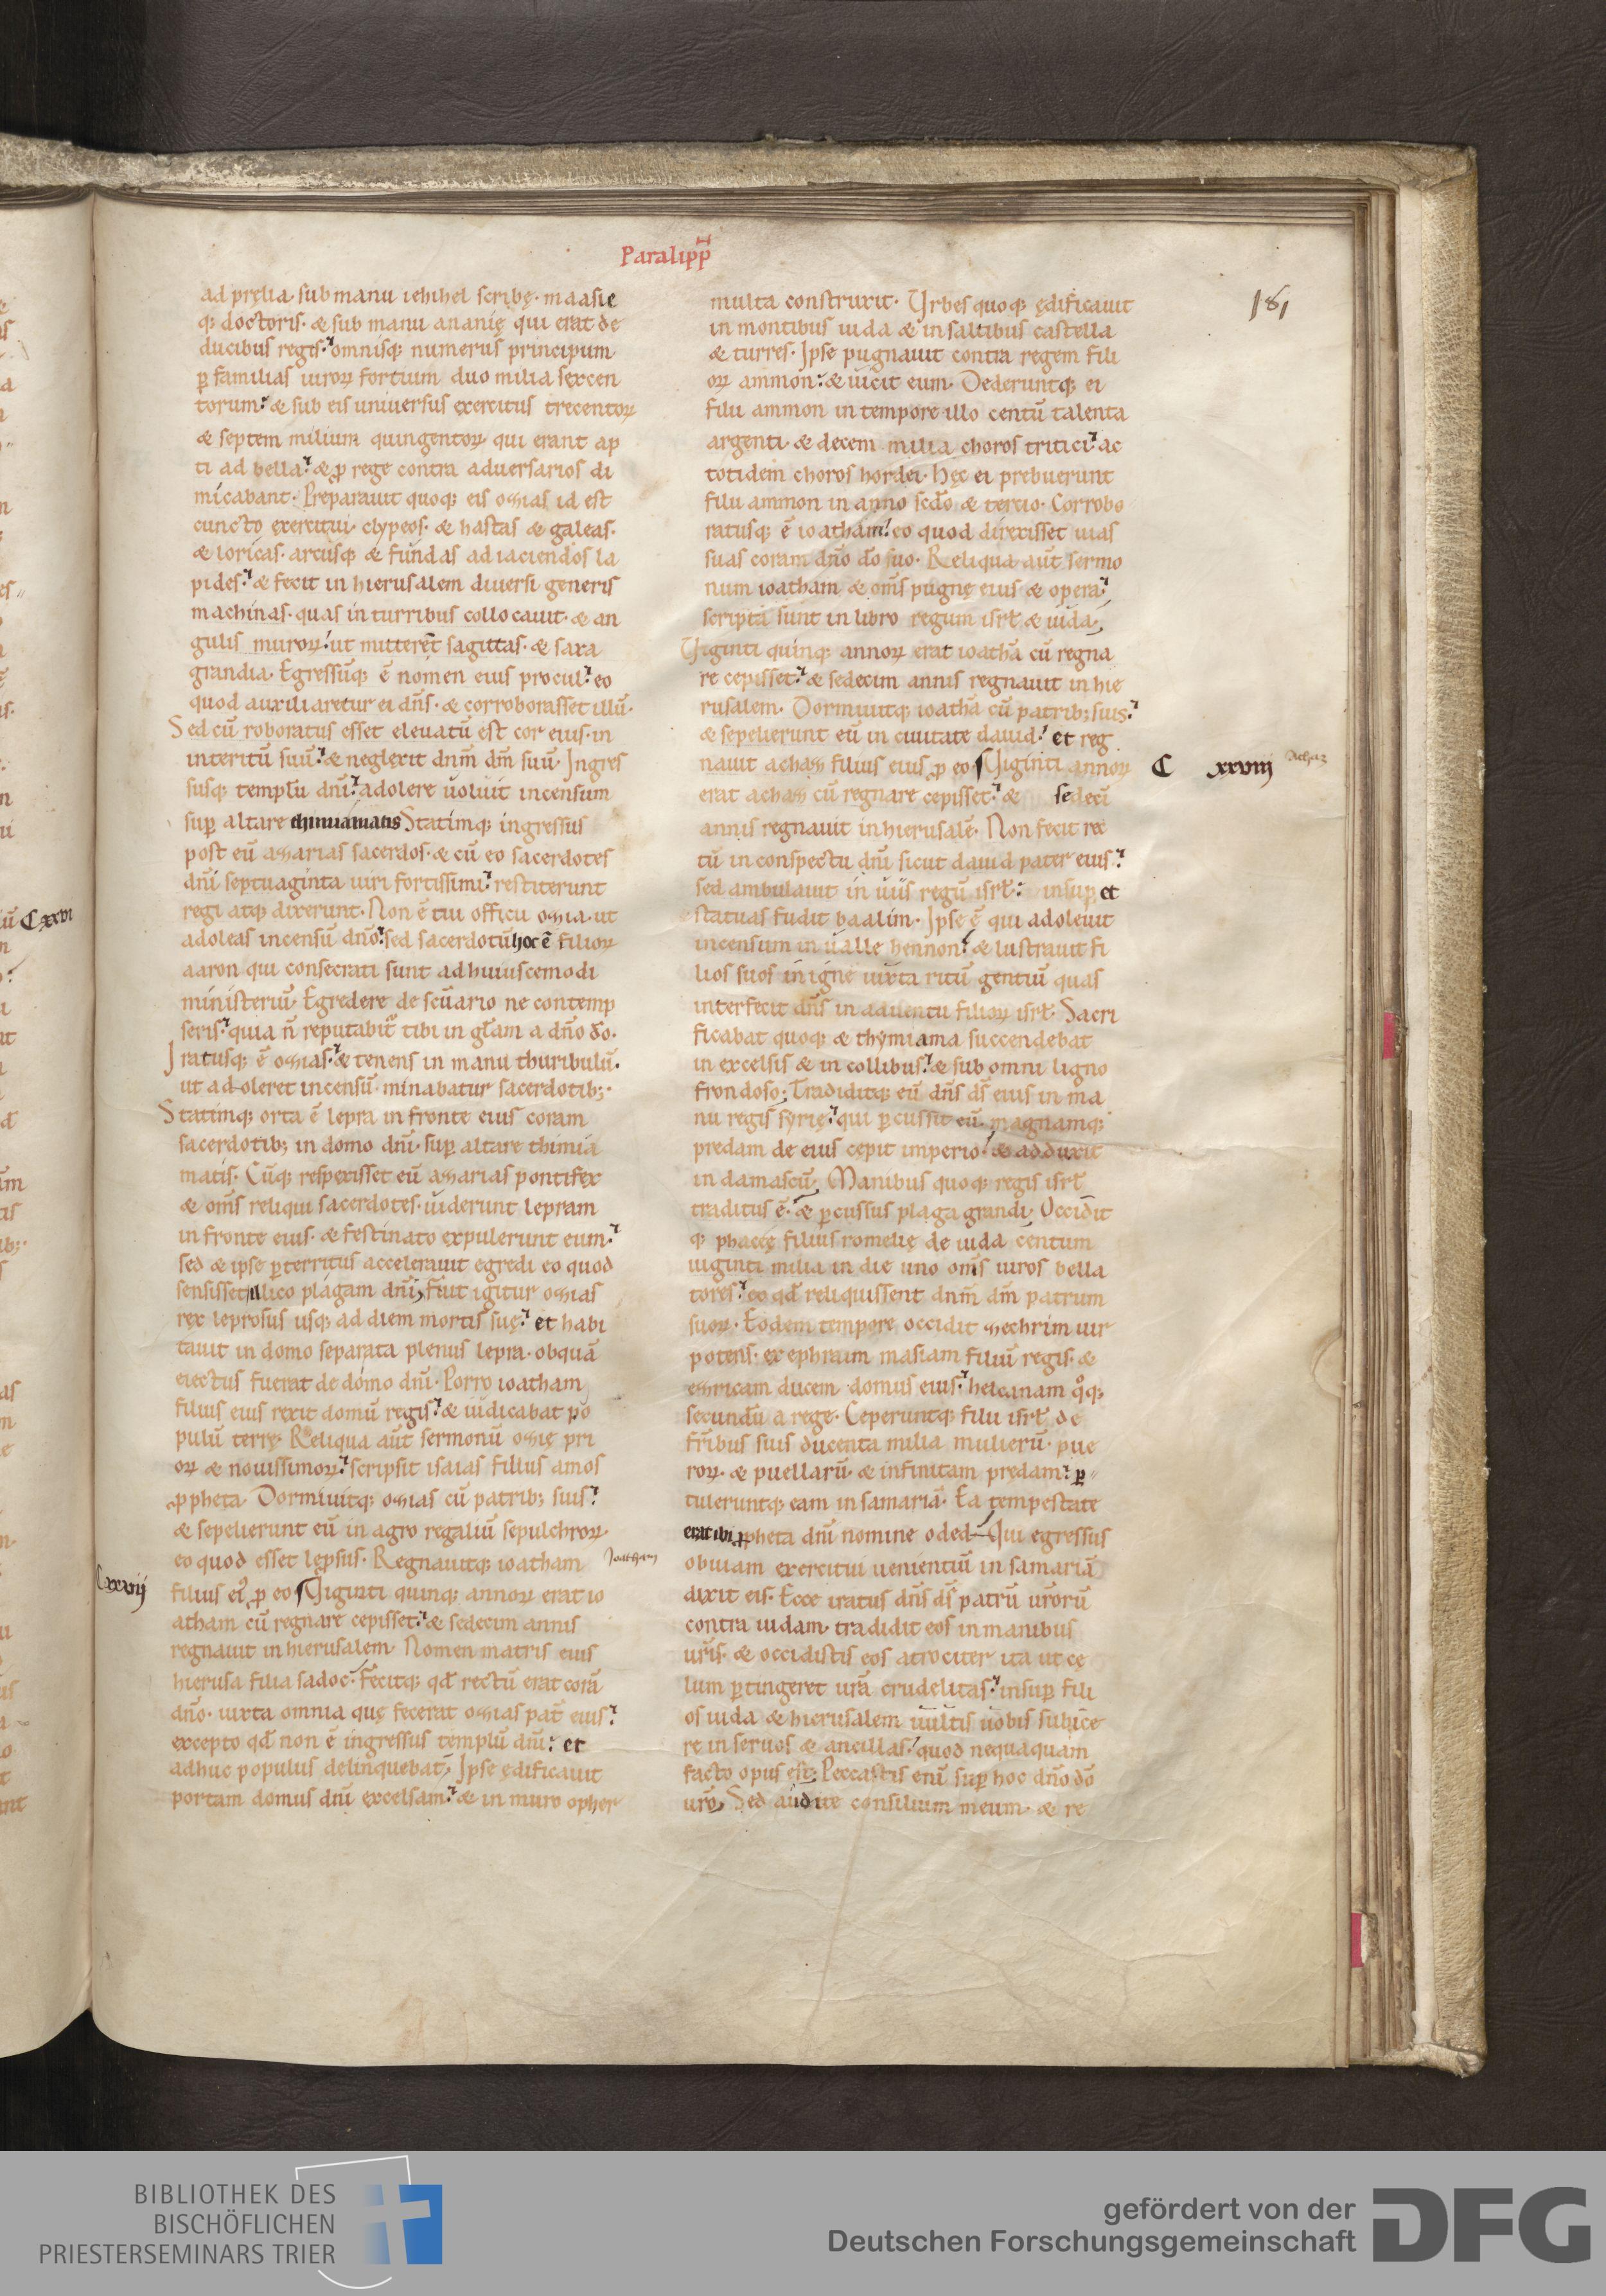 Paralipp̄
181
ad pręlia· sub manu iehihel scribę· maasie
q; doctoris· & sub manu ananię qui erat de
ducibus regis· omnisq; numerus principum
ꝑ familias uiroꝝ fortium duo milia sexcen
torum· & sub eis uniuersus exercitus trecentoꝝ
& septem milium quingentoꝝ qui erant ap
ti ad bella· & ꝓ rege contra aduersarios di
micabant· Preparauit quoq; eis ozias id est
cuncto exercitui· clypeos· & hastas & galeas·
& loricas· arcusq; & fundas ad iaciendos la
pides· & fecit in hierusalem diuersi generis
machinas· quas in turribus collocauit· & an
gulis muroꝝ· ut mitterēt sagittas· & saxa
grandia· Egressūq; ē nomen eius procul· eo
quod auxiliaretur ei dn̄s· & corroborasset illū·
Sed cū roboratus esset eleuatū est cor eius· in
interitū suū· & neglexit dnm̄ dm̄ suū· Ingres
susq; templū dn̄i· adolere uoluit incensum
suꝑ altare thimiamatis Statimq; ingressus
post eū azarias sacerdos· & cū eo sacerdotes
dn̄i septuaginta uiri fortissimi· restiterunt
regi atq; dixerunt· Non ē tui officii ozia· ut
adoleas incensū dn̄o· sed sacerdotū hoc ē filioꝝ
aaron qui consecrati sunt ad huiuscemodi
ministeriū· Egredere de scūario ne contemp
seris· quia n̄ reputabit̄ tibi in gl̄am a dn̄o do·
Iratusq; ē ozias· & tenens in manu thuribulū·
ut adoleret incensū· minabatur sacerdotib;·
Statimq; orta ē lepra in fronte eius coram
sacerdotib; in domo dn̄i· suꝑ altare thimia
matis· Cūq; respexisset eū azarias pontifex
& om̄s reliqui sacerdotes· uiderunt lepram
in fronte eius· & festinato expulerunt eum·
sed & ipse ꝑterritus accelerauit egredi eo quod
sensisset illico plagam dn̄i· Fuit igitur ozias
rex leprosus usq; ad diem mortis suę· et habi
tauit in domo separata plenus lepra· ob quā
eiectus fuerat de domo dn̄i· Porro ioatham
filius eius rexit domū regis· & iudicabat po
pulū terrę· Reliqua aūt sermonū ozię pri
oꝝ & nouissimoꝝ· scripsit isaias filius amos
ꝓpheta· Dormiuitq; ozias cū patrib; suis·
& sepelierunt eū in agro regaliū sepulchroꝝ
eo quod esset leprsus· Regnauitq; ioatham
Joatham
Cxxvij
filius ei᷒ ꝓ eo Uiginti quinq; annoꝝ erat io
atham cū regnare cepisset· & sedecim annis
regnauit in hierusalem· Nomen matris eius
hierusa filia sadoc· Fecitq; qd̄ rectū erat corā
dn̄o· iuxta omnia quę fecerat ozias pat̄ eius·
excepto qd̄ non ē ingressus templū dn̄i· et
adhuc populus delinquebat· Ipse ędificauit
portam domus dn̄i excelsam· & in muro opher
multa construxit· Urbes quoq; ędificauit
in montibus iuda & in saltibus castella
& turres· Ipse pugnauit contra regem fili
oꝝ ammon· & uicit eum· Dederuntq; ei
filii ammon in tempore illo centū talenta
argenti· & decem milia choros tritici· ac
totidem choros hordei· Hęc ei prebuerunt
filii ammon in anno scd̄o & tercio· Corrobo
ratusq; ē ioatham· eo quod direxisset uias
suas coram dn̄o do suo· Reliqua aūt sermo
num ioatham & om̄s pugnę eius & opera·
scripta sunt in libro regum isrl̄ & iuda·
Uiginti quinq; annoꝝ erat ioathā cū regna
re cepisset· & sedecim annis regnauit in hie
rusalem· Dormiuitq; ioathā cū patrib; suis·
& sepelierunt eū in ciuitate dauid· et reg
nauit achaz filius eius ꝓ eo Uiginti annoꝝ
C xxviij Achaz
erat achaz cū regnare cepisset· & sedecī
annis regnauit in hierusalē· Non fecit rec
tū in conspectu dn̄i sicut dauid pater eius·
sed ambulauit in uiis regū isrl̄· insuꝑ et
statuas fudit baalim· Ipse ē qui adoleuit
incensum in ualle hennon· & lustrauit fi
lios suos in igne iuxta ritū gentiū quas
interfecit dn̄s in aduentu filioꝝ isrl̄· Sacri
ficabat quoq; & thymiama succendebat
in excelsis & in collibus· & sub omni ligno
frondoso· Tradiditq; eū dn̄s ds̄ eius in ma
nu regis syrię· qui ꝑcussit eū· magnamq;
predam de eius cepit imperio· & adduxit
in damascū· Manibus quoq; regis isrl̄
traditus ē· & ꝑcussus plaga grandi· Occidit
q; phacee filius romelię de iuda centum
uiginti milia in die uno om̄s uiros bella
tores· eo qd̄ reliquissent dnm̄ dm̄ patrum
suoꝝ· Eodem tempore occidit zechrim uir
potens· ex ephraim masiam filiū regis· &
ezricam ducem domus eius· helcanam qͦq;
secundū a rege· Ceperuntq; filii isrl̄ de
fr̄ibus suis ducenta milia mulierū· pue
roꝝ· & puellarū· & infinitam prędam· ꝑ
tuleruntq; eam in samariā· Ea tempestate
erat ibi ꝓpheta dn̄i nomine oded Qui egressus
obuiam exercitui uenientiū in samariā
dixit eis· Ecce iratus dn̄s ds̄ patrū ur̄orū
contra iudam· tradidit eos in manibus
ur̄is· & occidistis eos atrociter ita ut cę
lum ꝑtingeret ur̄a crudelitas· insuꝑ fili
os iuda & hierusalem uultis uobis subice
re in seruos & ancillas· quod nequaquam
facto opus est· Peccastis enī suꝑ hoc dn̄o do
ur̄o· Sed audite consilium meum· & re
C xxvi
BIBLIOTHEK DES
BISCHÖFLICHEN
PRIESTERSEMINARS TRIER
gefördert von der
Deutschen Forschungsgemeinschaft
DFG